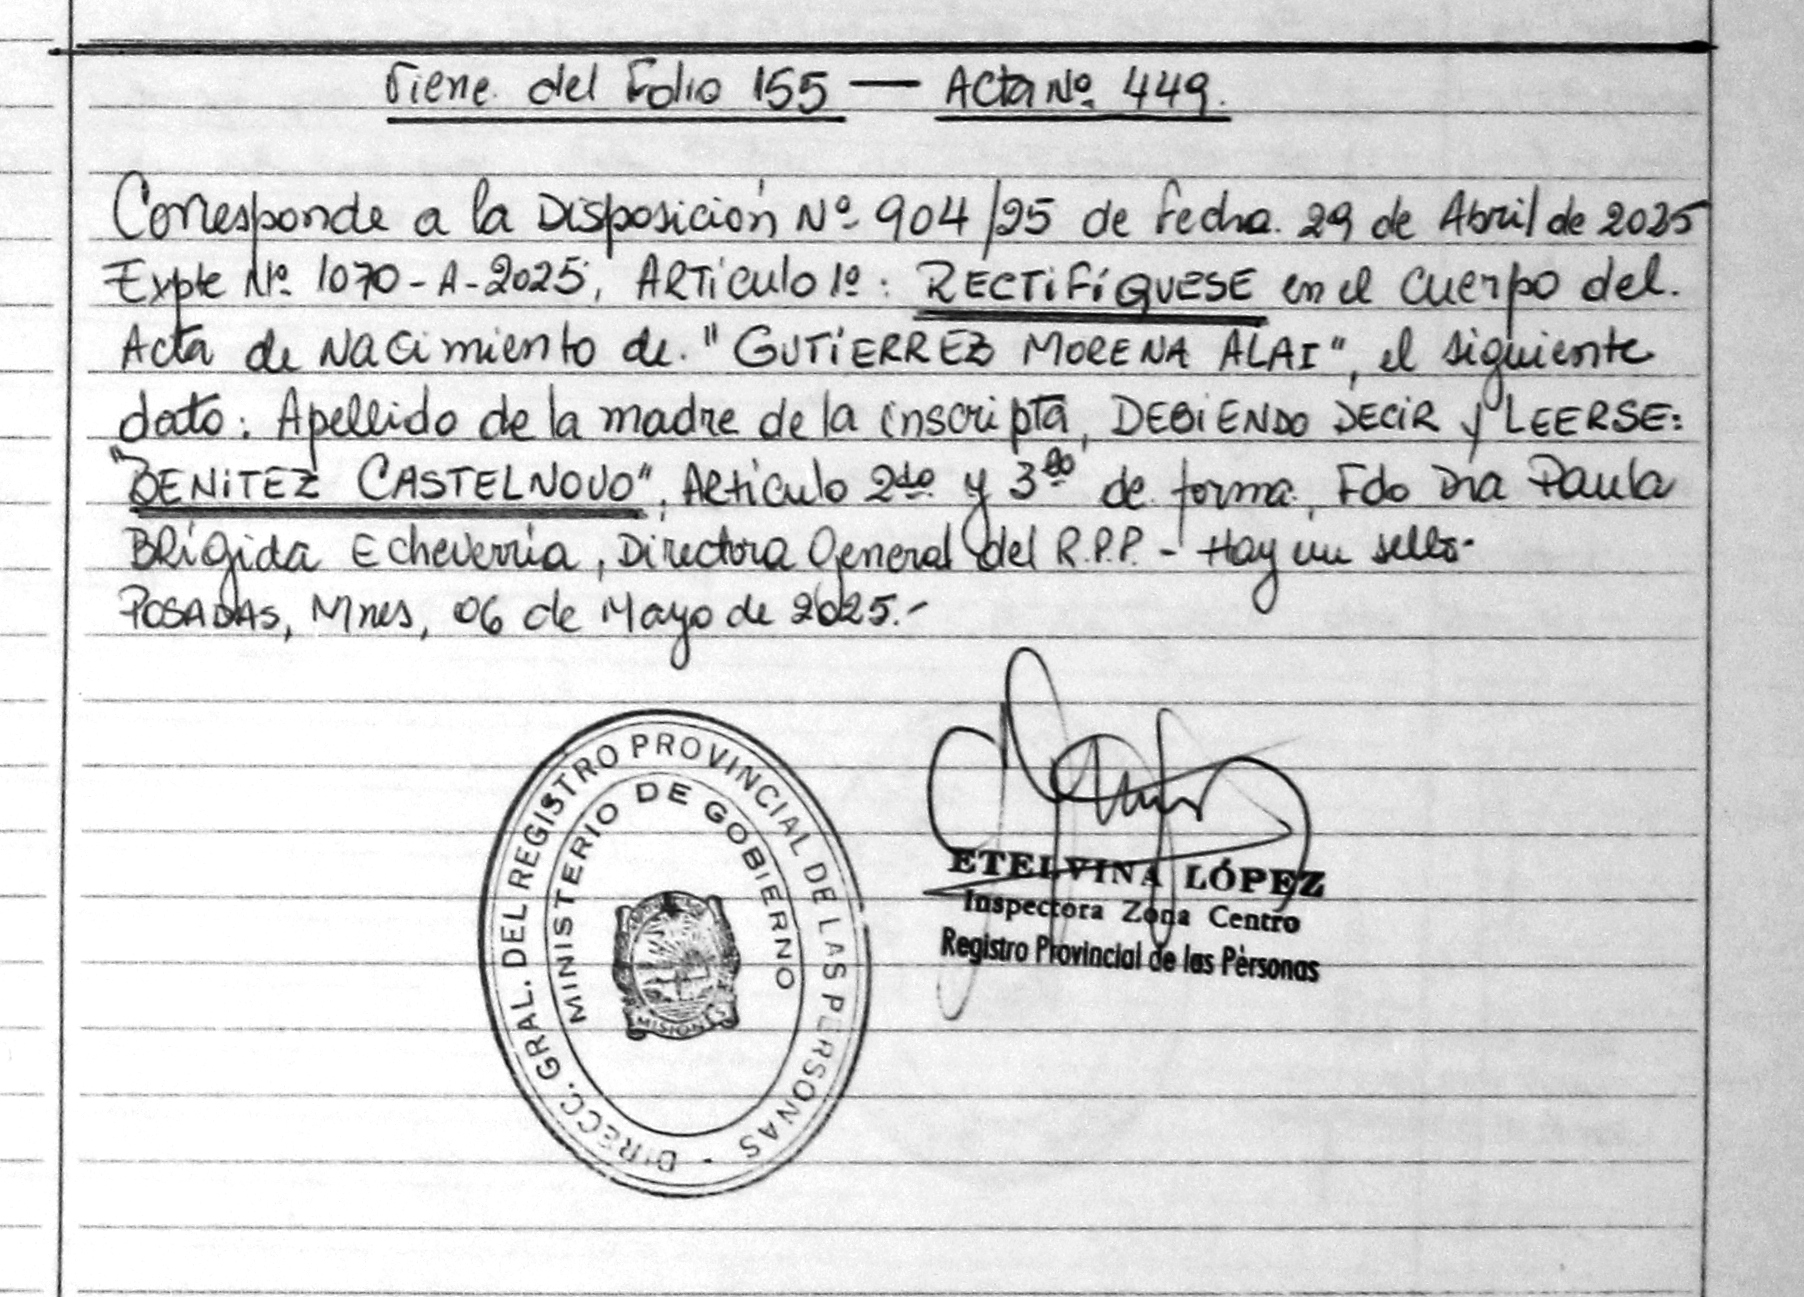 Viene del Folio 155 — Acta Nº 449.
Corresponde a la Disposición Nº 904/25 de fecha 29 de Abril de 2025
Expte Nº 1070-A-2025, ARTiculo 1º: RECTiFíQUESE en el cuerpo del
Acta de Nacimiento de "GUTiERREZ MORENA ALAI", el siguiente
dato: Apellido de la madre de la inscripta, DEBIENDO DECiR y LEERSE:
"BENiTEZ CASTELNOVO", Articulo 2do y 3ro de forma, Fdo Dra Paula
Brígida Echeverria, Directora General del R.P.P. - Hay un sello-
POSADAS, Mnes, 06 de Mayo de 2025.-
DIRECC. GRAL. DEL REGISTRO PROVINCIAL DE LAS PERSONAS
MINISTERIO DE GOBIERNO
MISIONES
ETELVINA LÓPEZ
Inspectora Zona Centro
Registro Provincial de las Personas